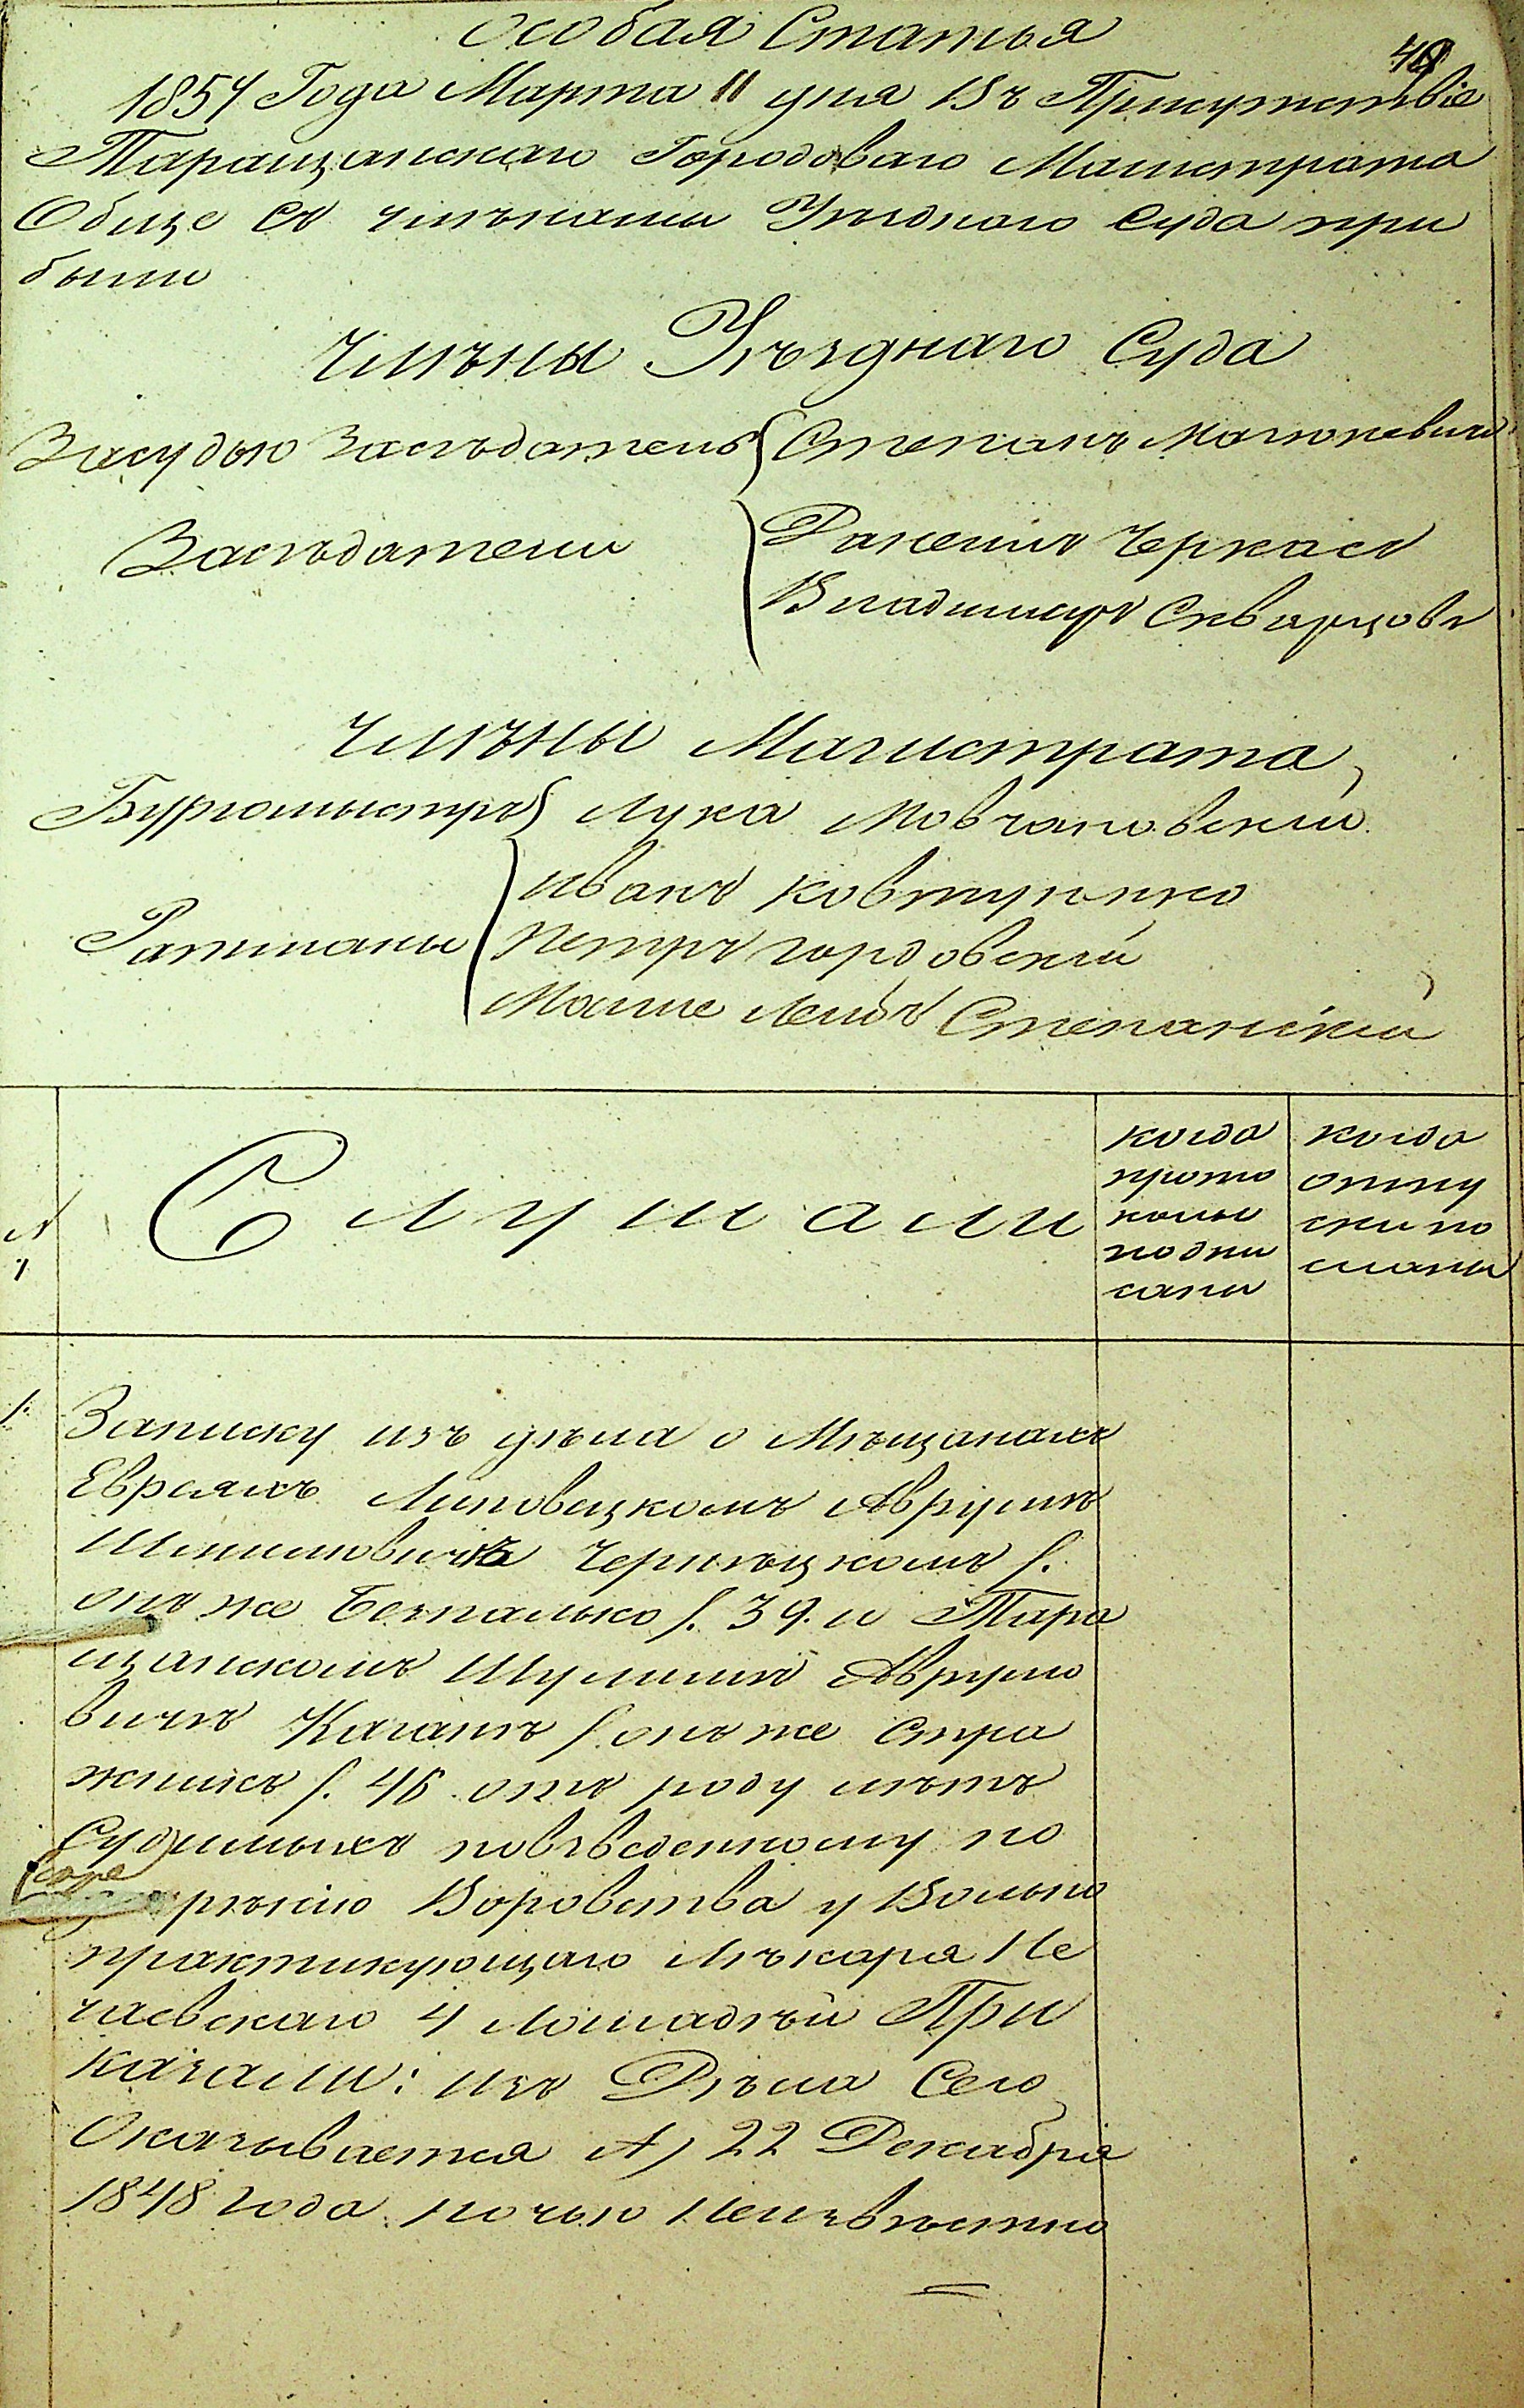 Особая Статья
49
1854 Года Марта 11 дня Въ Присутствіе
Таращанскаго Городоваго Магистрата
Обще Съ члѣнами Уѣзднаго Суда при
были
Члѣны Уѣзднаго Суда
Засудью Засѣдатель Степанъ
Засѣдатели
Данеилъ Черкасъ
Владимиръ Скварцовъ
Члѣны Магистрата
Бургомыстръ Лука Мовчановскій
Иванъ Ковтуненко
Ратманы Петръ Гордовскій
Мошие Лейбъ Степанскій
№
Слушали
когда
прото
колы
подпи
саны
когда
отпу
ски по
сланы
1. Записку изъ дѣла о Мѣщанахъ
Евреяхъ Липовецкомъ Аврумѣ
Шмилиовичѣ Чернецкомъ (.
онъ же Безпалько (. 39. и Тара
щанскомъ Шулимѣ Авруmo
вичѣ Каганѣ (. онъ же Стра
жникъ (. 46. отъ роду лѣтъ
Судимыхъ повзведенному по
дозрѣнію Воровства у Вольно
практикующаго Лѣкаря Не
чаевскаго 4 Лошадѣй При
казали: изъ Дѣла Сего
Оказывается А) 22 Декабря
1848 года ночью Неизвѣстно